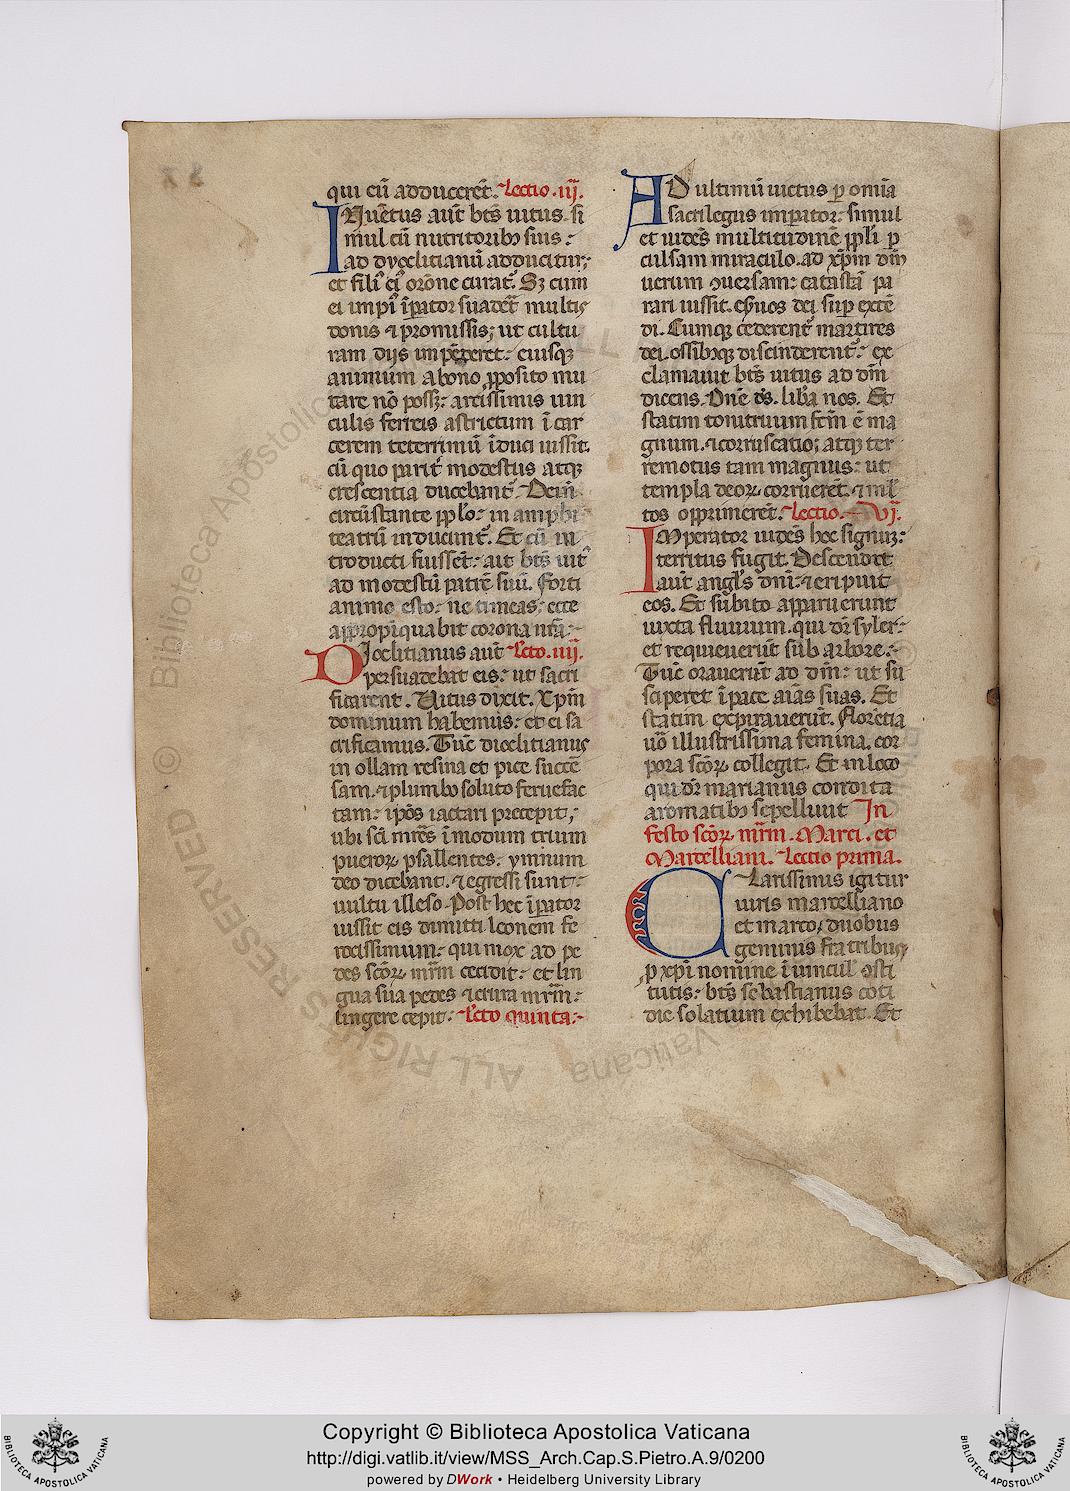 qui eū adducerēt. Lectio .iij.
INuētus aūt btūs uitus. si
mul cū nutritoribꝫ suis :
ad dyoclitianū adducitur;
et filiū eiꝰ orōne curat. Sꝫ cum
ei impiꝰ īpator suadet multis
donis ⁊ promissis; ut cultu
ram diis impēderet: eiusqꝫ
animum a bono ꝓposito mu
tare nō possꝫ: artissimis uin
culis ferreis astrictum ī car
cerem teterrimū īduci iussit.
cū quo parit̄ modestus atqꝫ
crescentia ducebant̄. Dein̄
circūstante ppl̄o: in amphi
teatrū inducunt̄. Et cū in
troducti fuissēt: ait bt̄s uitꝰ
ad modestū patrē suū. Forti
animo esto: ne timeas: ecce
appropīquabit corona nr̄a:
DIoclitianus aūt Lc̄to .iiij.
persuadebat eis: ut sacri
ficarent. Uitus dixit. Xp̄m
dominum habemus: et ei sa
crificamus. Tūc dioclitianus
in ollam resina et pice succē
sam. ⁊ plumbo soluto feruefac
tam: ip̄os iactari precepit;
ubi sc̄i mr̄es ī modum trium
pueroꝝ psallentes: ymnum
deo dicebant. ⁊ egressi sunt:
uultu illeso. Post hec īpator
iussit eis dimitti leonem fe
rocissimum: qui mox ad pe
des sc̄oꝝ mr̄m cecidit: et lin
gua sua pedes ⁊ crura mr̄m:
lingere cepit: Lc̄to quinta:
AD ultimū uictus ꝑ omīa
sacrilegus imꝑator: simul
et uidēs multitudinē ppl̄i ꝑ
culsam miraculo. ad xp̄m dn̄m
uerum ꝯuersam: catastā pa
rari iussit. eqͥuos dei suꝑ extē
di. Cumqꝫ cederent̄ martires
dei. ossibꝫqꝫ discinderent̄: ex
clamauit bt̄s uitus ad dn̄m
dicens. Dn̄e ds̄. libͣa nos. Et
statim tonitruum fc̄m ē ma
gnum. ⁊ corruscatio; atqꝫ ter
remotus tam magnus: ut
templa deoꝝ corruerēt. ⁊ ml̄
tos opprimerēt. Lectio. Vj.
IMperator uidēs hec signa:
territus fugit. Descendit
aūt angl̄s dn̄i: ⁊ eripuit
eos. Et subito apparuerunt
iuxta fluuium. qui dr̄ syler:
et requieuerūt sub arbore:
Tūc orauerūt ad dn̄m: ut su
sciperet ī pace aīas suas. Et
statim expirauerūt. Florētia
uō illustrissima femina. cor
pora sc̄oꝝ collegit. Et in loco
qui dr̄ marianus condita
aromatibꝫ sepelluit In
festo sc̄oꝝ mr̄m . Marci . et
Marcelliani. Lectio prima.
CLarissimus igitur
uiris marcelliano
et marco, duobus
geminis fratribus,
ꝓ xp̄i nomine ī uincul̄ ꝯsti
tutis: bt̄s sebastianus coti
die solatium exhibebat. Et
Copyright © Biblioteca Apostolica Vaticana
http://digi.vatlib.it/view/MSS_Arch.Cap.S.Pietro.A.9/0200
powered by DWork • Heidelberg University Library